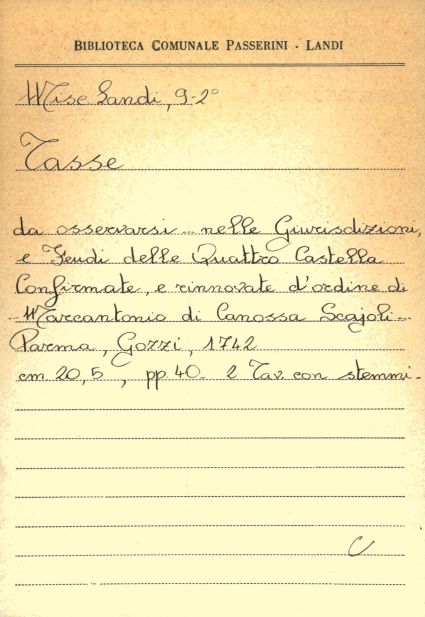 BIBLIOTECA COMUNALE PASSERINI - LANDI
Misc Landi, 9-2°
Tasse
da osservarsi ... nelle Giurisdizioni,
e Feudi delle Quattro Castella
Confirmate, e rinnovate d'ordine di
Marcantonio di Canossa Scajoli -
Parma, Gozzi, 1742
cm. 20,5, pp. 40 - 2 Tav. con stemmi -
C